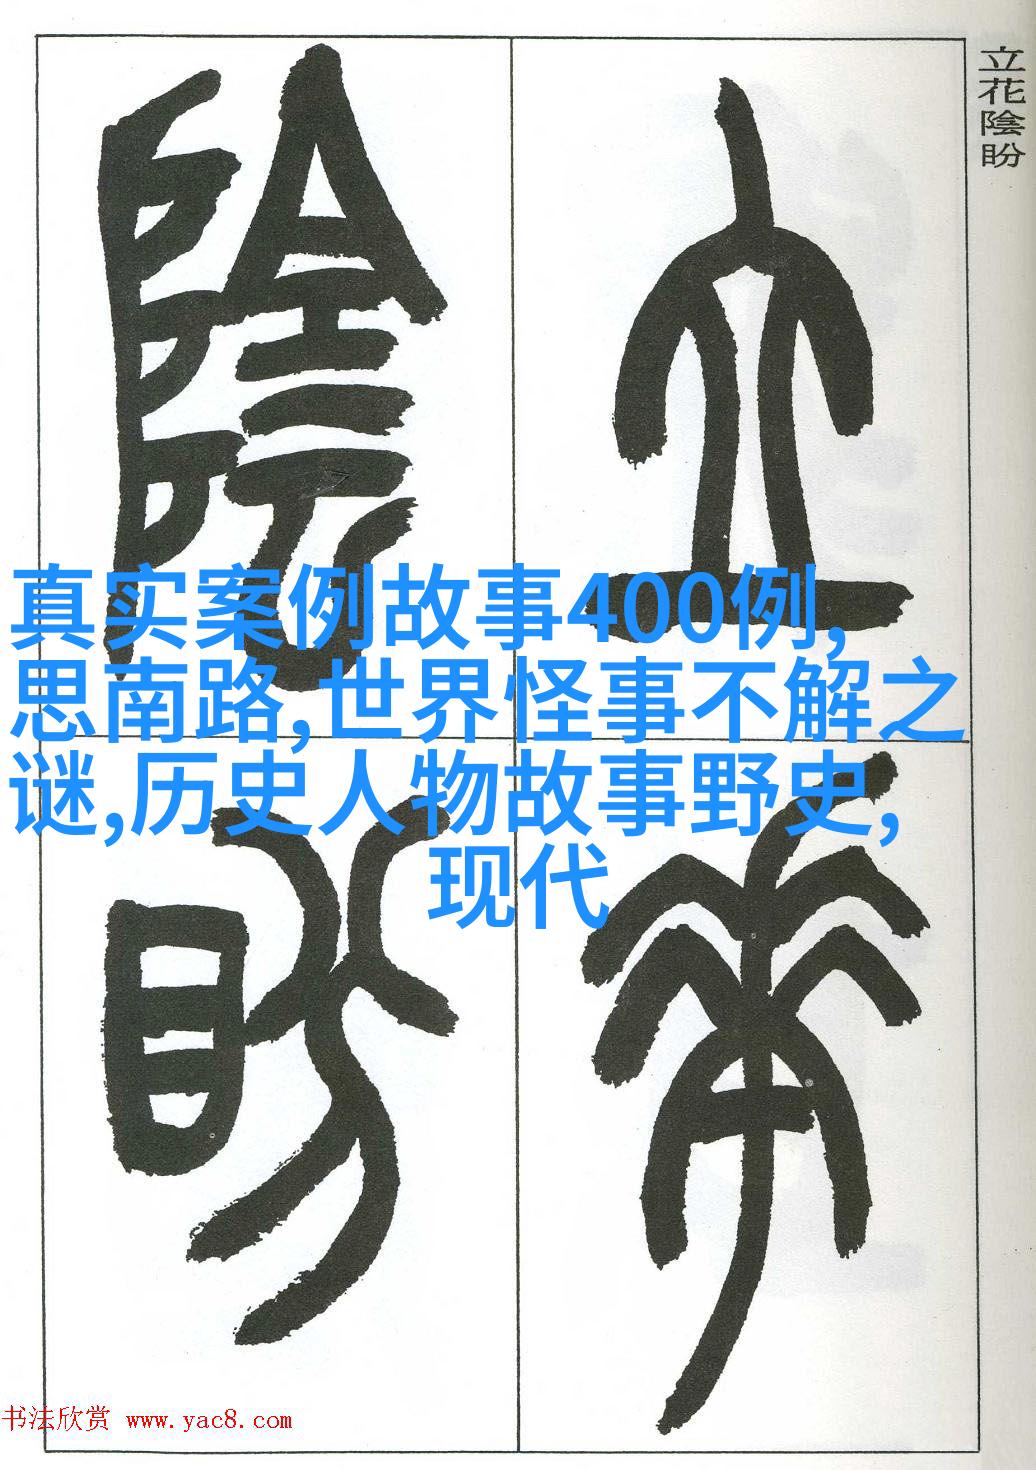 立花陰盼
立
花
陰
盼
真实案例故事400例,
思南路,世界怪事不解之
谜,历史人物故事野史,
现代
书法欣赏 www.yac8.com